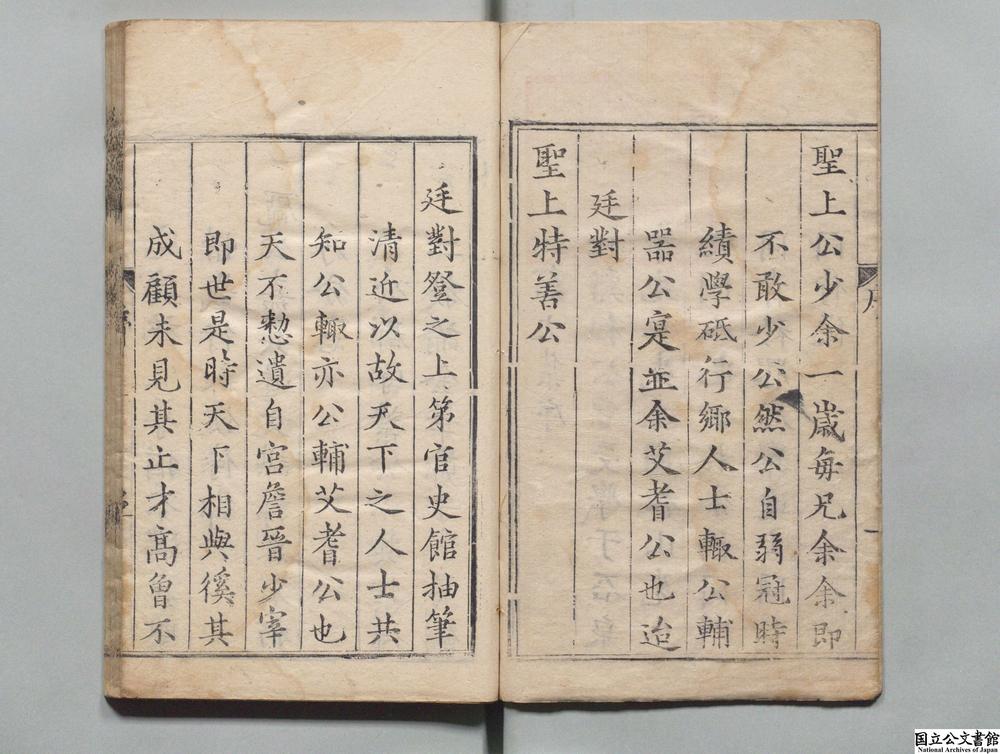 聖上公少余一歲每兄余余即
不敢少公然公自弱冠時
績學砥行鄉人士輙公輔
噐公寔並余艾耆公也迨
廷對
聖上特善公
廷對登之上第官史館抽筆
清近以故天下之人士共
知公輙亦公輔艾耆公也
天不憗遺自宮詹晉少宰
即世是時天下相與徯其
成顧未見其止才高曾不
序
一
国立公文書館
National Archives of Japan